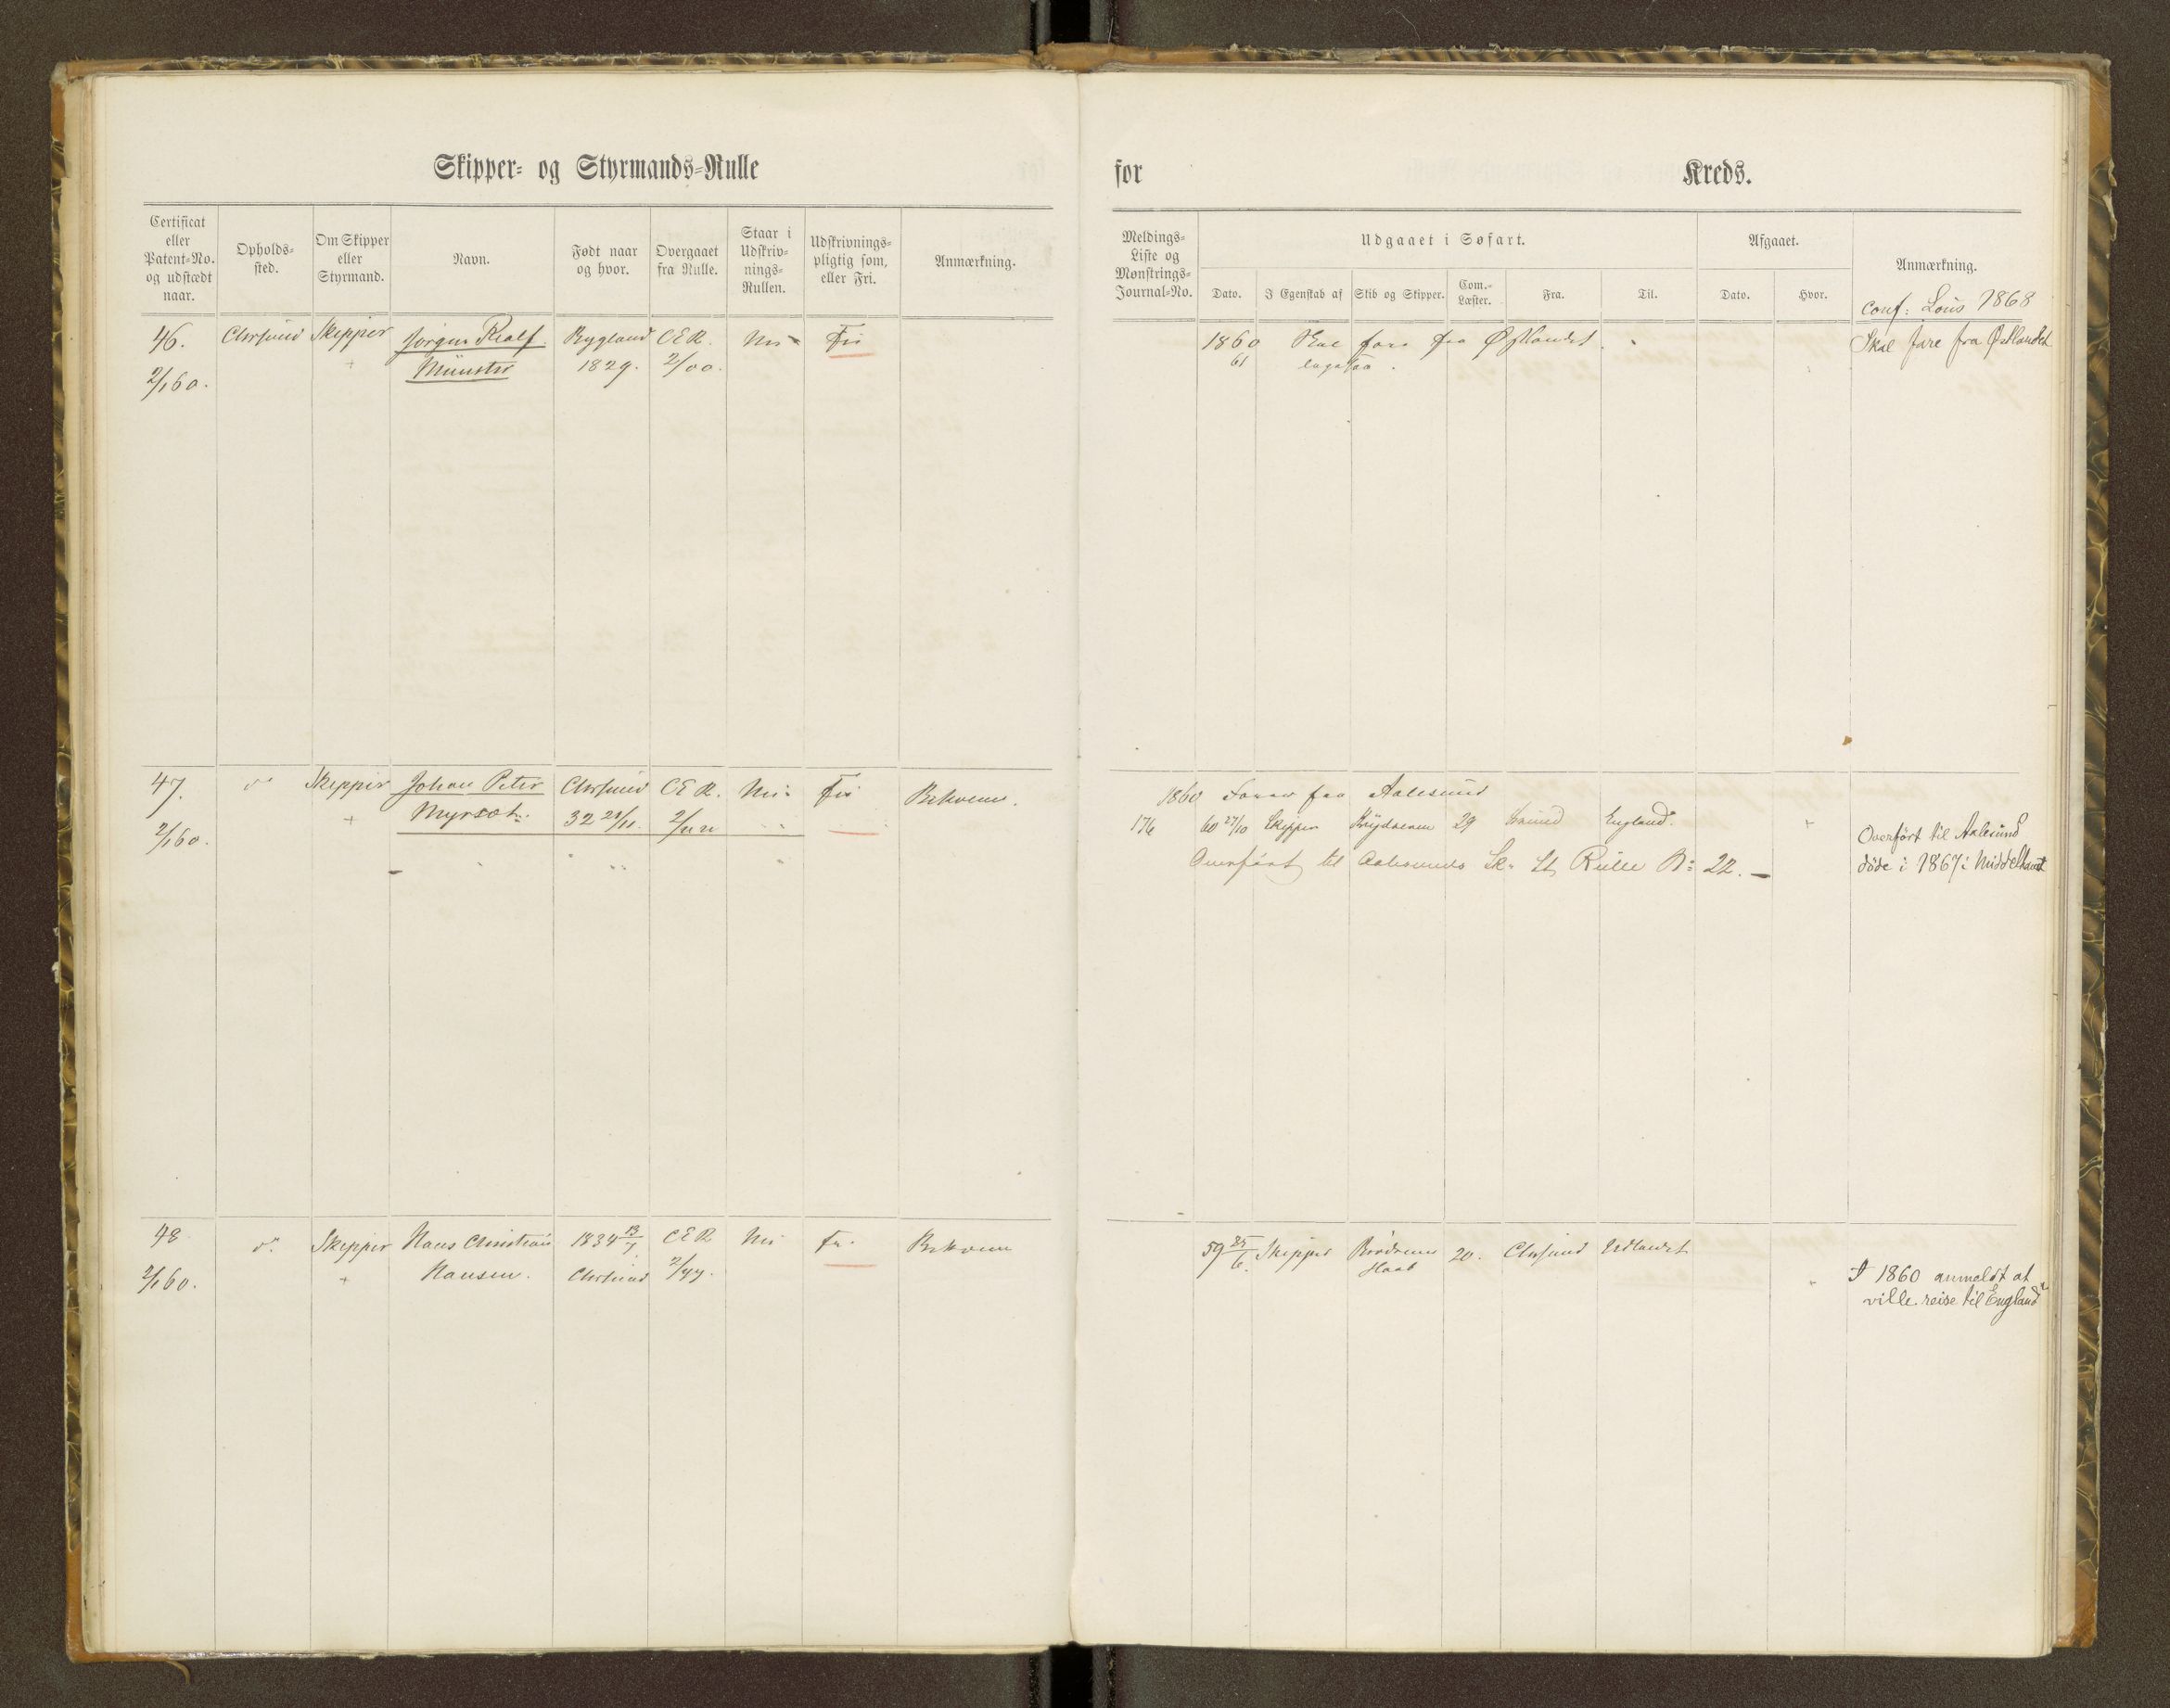 Skipper- og Styrmands-Rulle
for Kreds.
Certificat eller Patent-No. og udstædt naar.
Opholds-sted.
Om Skipper eller Styrmand.
Navn.
Født naar og hvor.
Overgaaet fra Rulle.
Staar i Udskriv-nings-Rullen.
Udskrivnings-pligtig som, eller Fri.
Anmærkning.
Meldings-Liste og Mønstrings-Journal-No.
Udgaaet i Søfart.
Dato. I Egenskab af Skib og Skipper. Com.-Læster. Fra. Til.
Afgaaet.
Dato. Hvor.
Anmærkning.
conf: Louis 1868
46. Chrsund Skipper Jørgen Rolf Bygland CER. Nei Fri
2/1 60. Münster 1829. 2/00.
1860 Skal fare fra Østlandet.
61
Skal fare fra Østlandet
47. do Skipper Johan Peter Chrsund CER. Nei Fri Bekvem.
2/1 60. Myrseth 32 21/11.
1860 Farer fra Aalesund
176 60 27/10 Skipper 29 Krsund England.
Overført til Aalesunds Sk. St Rulle No 22.
Overført til Aalesund
døde i 1867 i Middelhavet
48 do. Skipper Hans Christian 1834 13/7 CER Nei Fri. Bekvem
2/1 60. Hansen. Chrsund 2/47.
59 25/6. Skipper Brødrenes 20. Chrsund Udlandet
Haab
I 1860 anmeldt at
ville reise til England